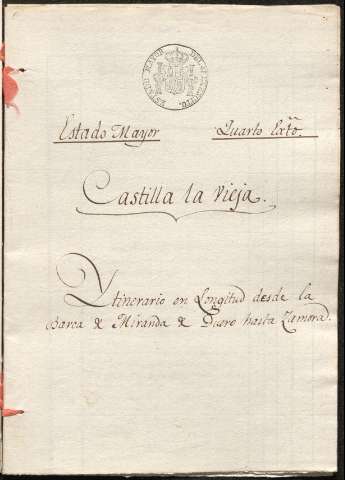 ESTADO MAYOR DEL EJERCITO.
Estado Mayor Quarto Exto.
Castilla la Vieja.
Ytinerario en Longitud desde la
Barca de Miranda de Duero hasta Zamora.